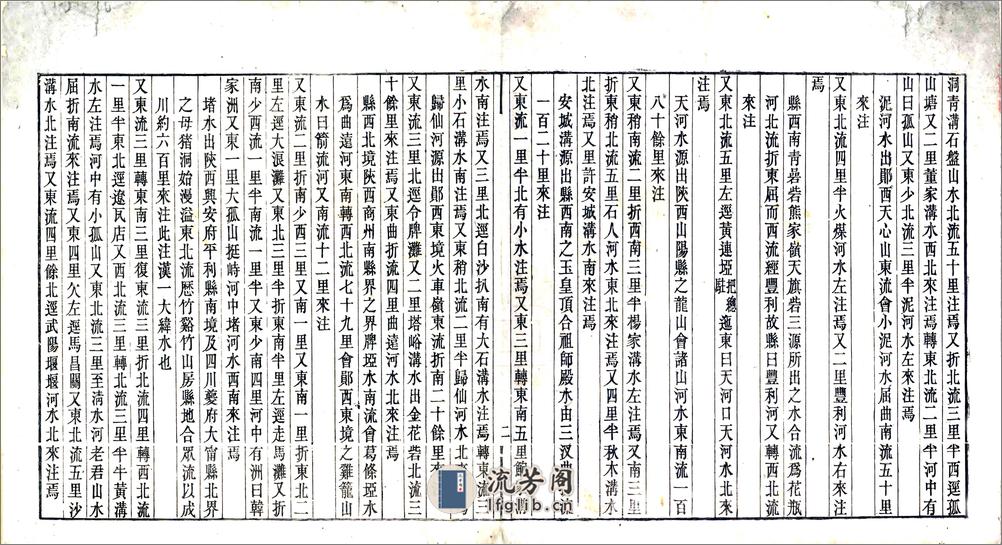 洞青溝石盤山水北流五十里注焉又折北流三里半西逕孤
山砦又二里董家溝水西北來注焉轉東北流二里半河中有
山曰孤山又東少北流三里半泥河水左來注焉
泥河水出鄖西天心山東流會小泥河水屈曲南流五十里
來注
又東北流四里半火煤河水左注焉又二里豐利河水右來注
焉
縣西南青碞砦熊家嶺天旗砦三源所出之水合流爲花瓶
河北流折東屈而西流經豐利故縣曰豐利河又轉西北流
來注
又東北流五里左逕黃連埡把總駐迤東曰天河口天河水北來
注焉
天河水源出陝西山陽縣之龍山會諸山河水東南流一百
八十餘里來注
又東稍南流二里折西南三里半楊家溝水左注焉又南三里
折東稍北流五里石人河水東北來注焉又四里半秋木溝水
北注焉又里許安城溝水南來注焉
安城溝源出縣西南之玉皇頂合祖師殿水由三汊
一百二十里來注
又東流一里半北有小水注焉又東三里轉東南五里
二
水南注焉又三里北逕白沙扒南有大石溝水注焉轉東流三
里小石溝水南注焉又東稍北流二里半歸仙河水北
歸仙河源出鄖西東境火車嶺東流折南二十餘里
又東流三里北逕令牌灘又二里塔峪溝水出金花砦北流三
十餘里來注焉又東曲折流四里曲遠河水北來注
縣西北境陝西商州南縣界之界牌埡水南流會葛條埡水
爲曲遠河東南轉西北流七十九里會鄖西東境之雞籠山
水曰箭流河又南流十二里來注
又東流二里折南少西三里又東南一里又東南一里折東北二
里左逕大浪灘又東北三里半折東南半里左逕走馬灘又折
南少西流一里半南流一里半又東少南四里河中有洲曰韓
家洲又東一里大孤山挺峙河中堵河水西南來注焉
堵水出陝西興安府平利縣南境及四川夔府大甯縣北界
之母豬洞始漫溢東北流歷竹谿竹山房縣地合眾流以成
川約六百里來注此注漢一大緯水也
又東流三里半轉東南三里復東流三里折北流四里轉西北流
一里半東北逕遼瓦店又西北流三里轉北流三里半牛黃溝
水左注焉河中有小孤山又東北流三里至清水河老君山水
屈折南流來注焉又東四里欠左逕馬昌關又東北流五里沙
溝水北注焉又東流四里餘北逕武陽堰堰河水北來注焉
流芳阁
lfglib.com